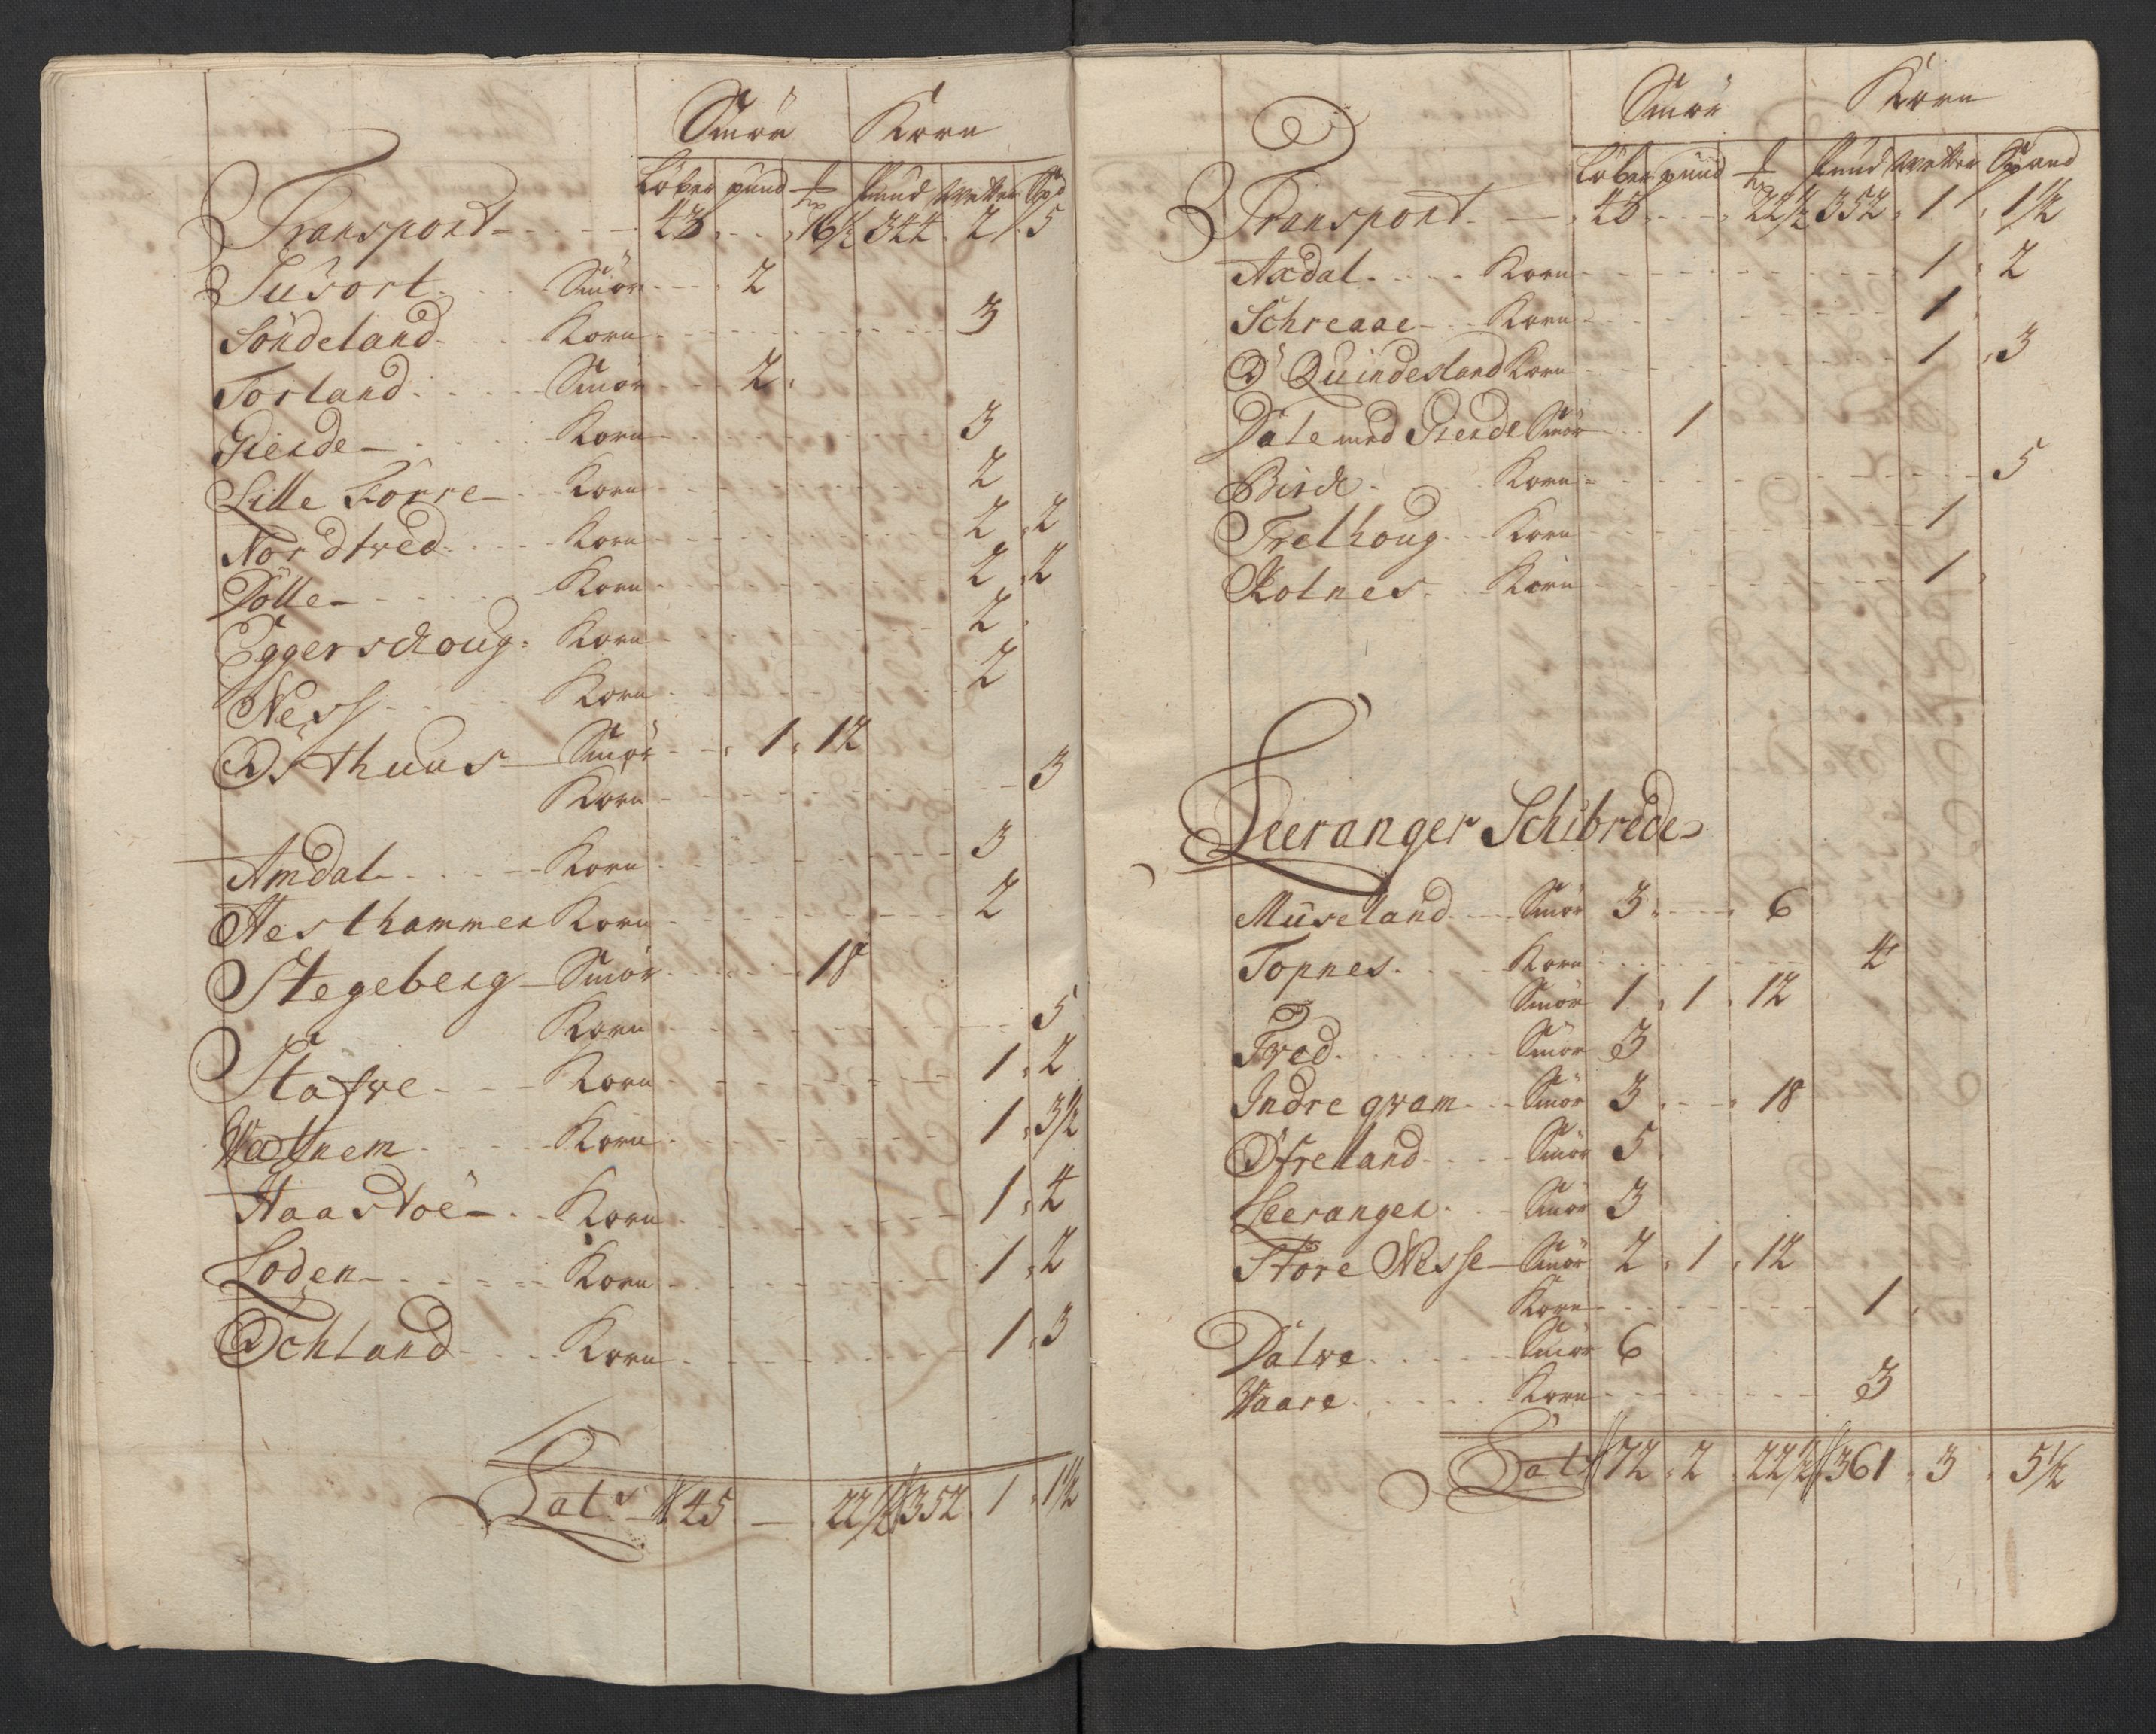 Smör Korn
Löber pund ℔ Pund Wetter Spd
Transport - - - - 43 . . . 16½ 344 . 2 . 5
Susort . . . Smör - - . 2
Söndeland . . . Korn - - - - 3
Torland . . . . Smör - - 2 .
Gierde - . . . . Korn - - - - 3
Lille Förre - . - Korn - - - - 2
Nordtved . . . - Korn - - - - 2 . 2
Dölle - - - - - Korn - - - - 2 . 2
Eggerschoug . Korn - - - - 2 .
Ness - - - - Korn - - - - 2
Osthuus - Smör - - . 1 . 12
Korn - - - - 3
Amdal - . . . - Korn - - - - 3
Hesthammer Korn - - - - 2
Stegeberg - Smör - - - - 18
Korn - - - - 5
Stafve - - - Korn - - - - 1 . 2
Wattnem . . . . Korn - - - - 1 . 3½
Haastöe - . - Korn - - - - 1 . 4
Loden - - - - Korn - - - - 1 . 2
Ochland - - . . Korn - - - - 1 . 3
Lats 45 . — . 22½ 352 . 1 . 1½
Smör Korn
Löber pund ℔ Pund Wetter Spand
Transport . — . 45 . - - . 22½ 352 . 1 . 1½
Axdal . . . . Korn - - - - 1 . 2
Schreaae - . . Korn - - - - 1 .
D Quindesland Korn - - - - 1 . 3
Dale med Gierde Smör - . . 1
Birck . . . . Korn - - - - 5
Trelhoug . . . Korn - - - - 1
Kolnes . . . Korn - - - - 1 .
Leeranger Schibrede
Museland . . . . Smör 3 . - - . 6
Topnes . . . . Korn - - - - 4
Smör 1 . 1 . 12
Tved . . . . . . Smör 3
Indre qvam . . . Smör 3 . - - . 18
Öfreland . . . . Smör 5
Leeranger . . . Smör 3
Store Nesse - Smör 2 . 1 . 12
Korn - - - - 1 .
Dalve . . . . . Smör 6
Waare . . . . . Korn - - - - 3
Lat 72 . 2 . 22½ 361 . 3 . 5½